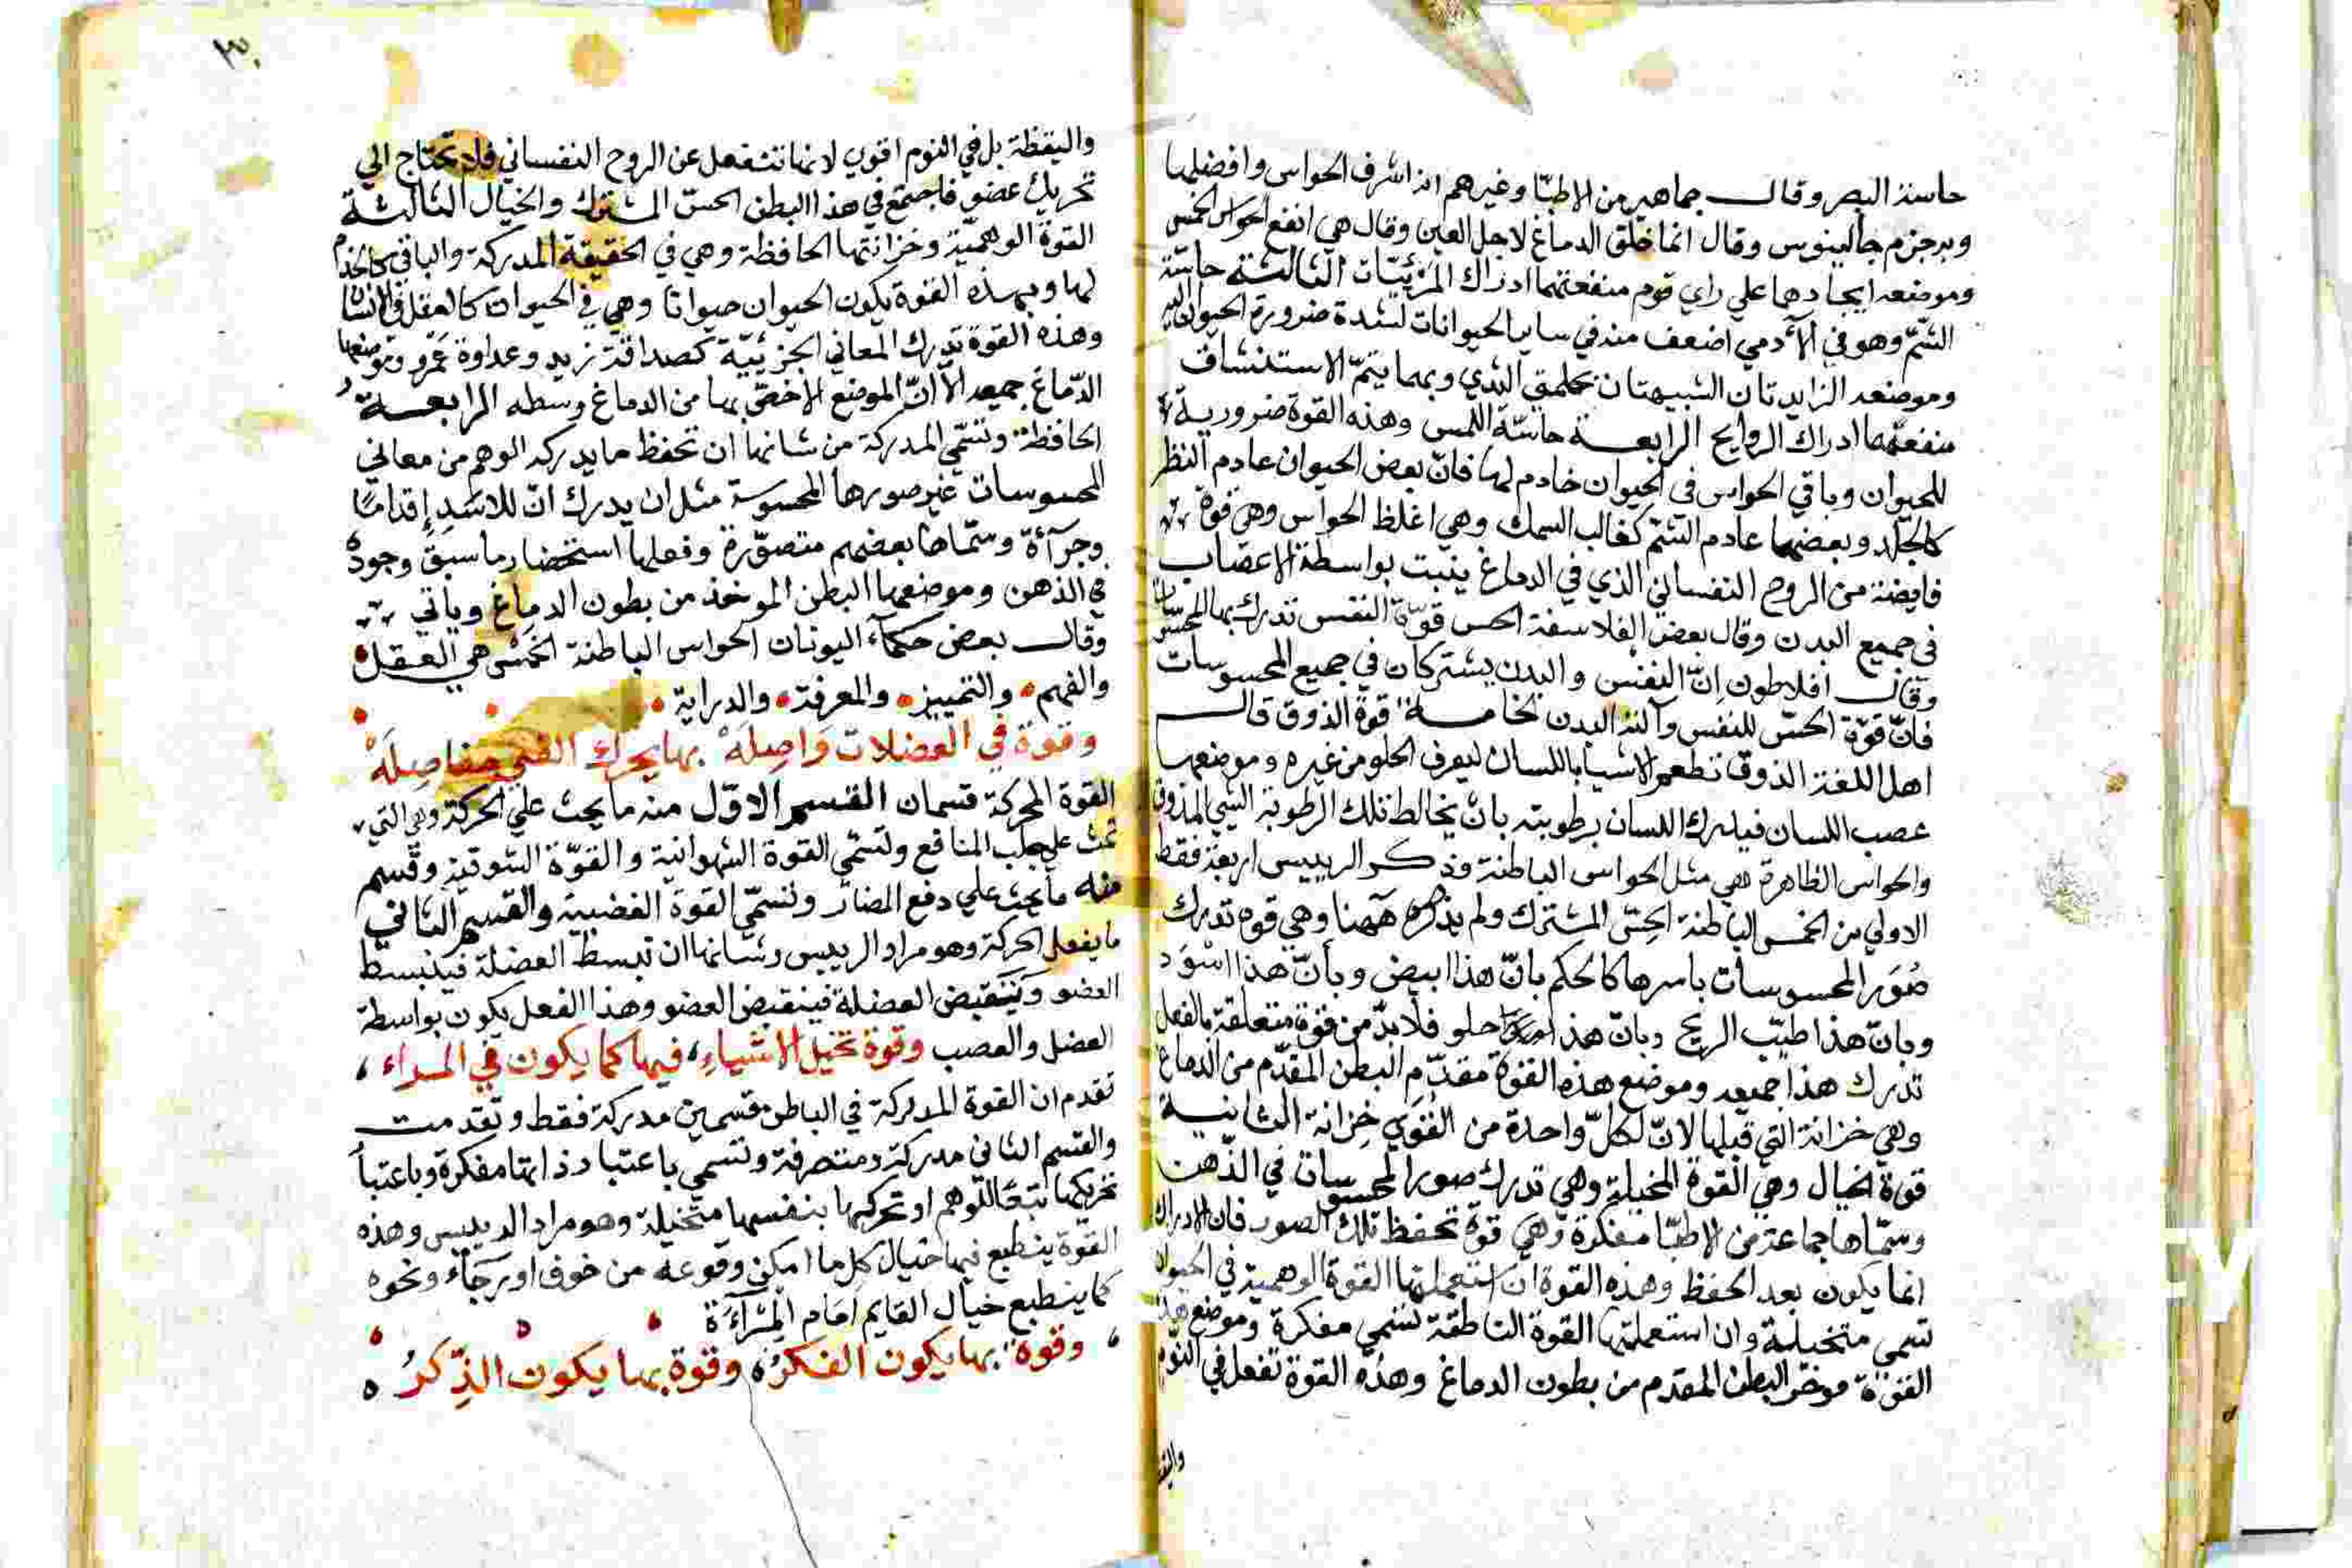 حاسة البصر وقال جماهير من الاطبّا وغيرهم انه اشرف الحواس وافضلها
وبه جزم جالينوس وقال انما خلق الدماغ لاجل العين وقال هي انفع الحواس الخمس
وموضعه ايجادهما علي راي قوم منفعتهما ادراك المرئيّات الثالثة حاسّة
الشّمّ وهو في الآدمي اضعف منه في ساير الحيوانات لشدة ضرورة الحيوان اليه
وموضعه الزايدتان الشبيهتان بحلمتي الثدي وبهما يتمّ الاستنشاق
منفعتهما ادراك الروايح الرابعة حاسّة اللمس وهذه القوة ضرورية
للحيوان وباقي الحواس في الحيوان خادم لها فانّ بعض الحيوان عادم النظر
كالخلد وبعضها عادم الشم كغالب السمك وهي اغلظ الحواس وهي قوة
فايضة من الروح النفساني الذي في الدماغ ينبت بواسطة الاعصاب
في جميع البدن وقال بعض الفلاسفة الحس قوّة النفس تدرك بها المحسوسات
وقال افلاطون انّ النفس والبدن يشتركان في جميع المحسوسات
فانّ قوّة الحسّ للنفس وآلته البدن الخامسة قوة الذوق قال
اهل اللغة الذوق تطعم الاشيا باللسان ليعرف الحلو من غيره وموضعها
عصب اللسان فيدرك اللسان برطوبته بان يخالط تلك الرطوبة الشي المذوق
والحواس الظاهرة هي مثل الحواس الباطنة وذكر الرييس اربعة فقط
الاولي من الخمس الباطنة الحِسّ المشترك ولم يذكره ههنا وهي قوه تدرك
صُوَر المحسوسات باسرها كالحكم بانّ هذا ابيض وبأنّ هذا اسْوَد
وبانّ هذا طيّب الريح وبانّ هذا حلو فلابدّ من قوة متعلقة بالفعل
تدرك هذا جميعه وموضع هذه القوة مقدّم البطن المقدّم من الدماغ
وهي خزانة التي قبلها لانّ لكلّ واحدة من القُوَي خِزانة الثانية
قوة الخيال وهي القوة المخيلة وهي تدرك صور المحسوسات في الذّهن
وسمّاها جماعة من الاطبّا مفكرة وهي قوّة تحفظ تلك الصور فان الادراك
انما يكون بعد الحفظ وهذه القوة ان استعملتها القوة الوهمية في الحيوان
تسمي متخيلة وان استعملتها القوة الناطقة تسمي مفكرة وموضع هذه
القوّة موخر البطن المقدم من بطون الدماغ وهذه القوة تفعل في النوم
واليقظة
٣٠
واليقظة بل في النوم اقوي لانها تنفعل عن الروح النفساني فلا تحتاج الي
تحريك عضو فاجتمع في هذا البطن الحسّ المشترك والخيال الثالثة
القوة الوهميّة وخزانتها الحافظة وهي في الحقيقة المدركة والباقي كالخدام
لها وبهذه القوة يكون الحيوان حيوانا وهي في الحيوان كالعقل في الانسان
وهذه القوة تدرك المعاني الجزئيّة كصداقة زيد وعداوة عَمْرو وموضعها
الدّماغ جميعه الا انّ الموضع الاخصّ بها من الدماغ وسطه الرابعة
الحافظة وتسمّي المدركة من شانها ان تحفظ ما يدركه الوهم من معاني
المحسوسات غير صورها المحسوسة مثل ان يدرك انّ للاسَدِ اِقدامًا
وجرآءة وسمّاها بعضهم متصوّرة وفعلها استحضار ما سبق وجودهُ
في الذهن وموضعها البطن الموخذ من بطون الدماغ وياتي
وقال بعض حكمآء اليونان الحواس الباطنة الخمْس هي العقل
والفهم والتمييز والمعرفة والدراية
وقوة في العضلات وَاصِلَهْ بها يحرك الفتي مفاصِلَهْ
القوة المحركة قسمان القسم الاوّل منه ما يحث علي الحركة وهي التي
تحث علي جلب المنافع وتسمّي القوة الشهوانية والقوّة الشوقية وقسم
منه ما يحث علي دفع المضارّ وتسمّي القوة الغضبية والقسم الثاني
ما يفعل الحركة وهو مراد الرييس وشانها ان تبسط العضلة فينبسط
العضو وتقبض العضلة فينقبض العضو وهذا الفعل يكون بواسطة
العضل والعصب وقوة تخيل الاشياءِ فيها كما يكون في المراء
تقدم ان القوة المدركة في الباطن قسمين مدركة فقط وتقدمت
والقسم الثاني مدركة ومتصرفة وتسمي باعتبار ذاتها مفكرة وباعتبار
تحريكها تبعًا للوهم او تحركها بنفسها متخيلة وهو مراد الرييس وهذه
القوة ينطبع فيها خيال كل ما امكن وقوعه من خوف او رجَآء ونحوه
كما ينطبع خيال القايم امَام المِرْآة
وقوة بها يكون الفكرُ وقوة بها يكون الذِّكرُ